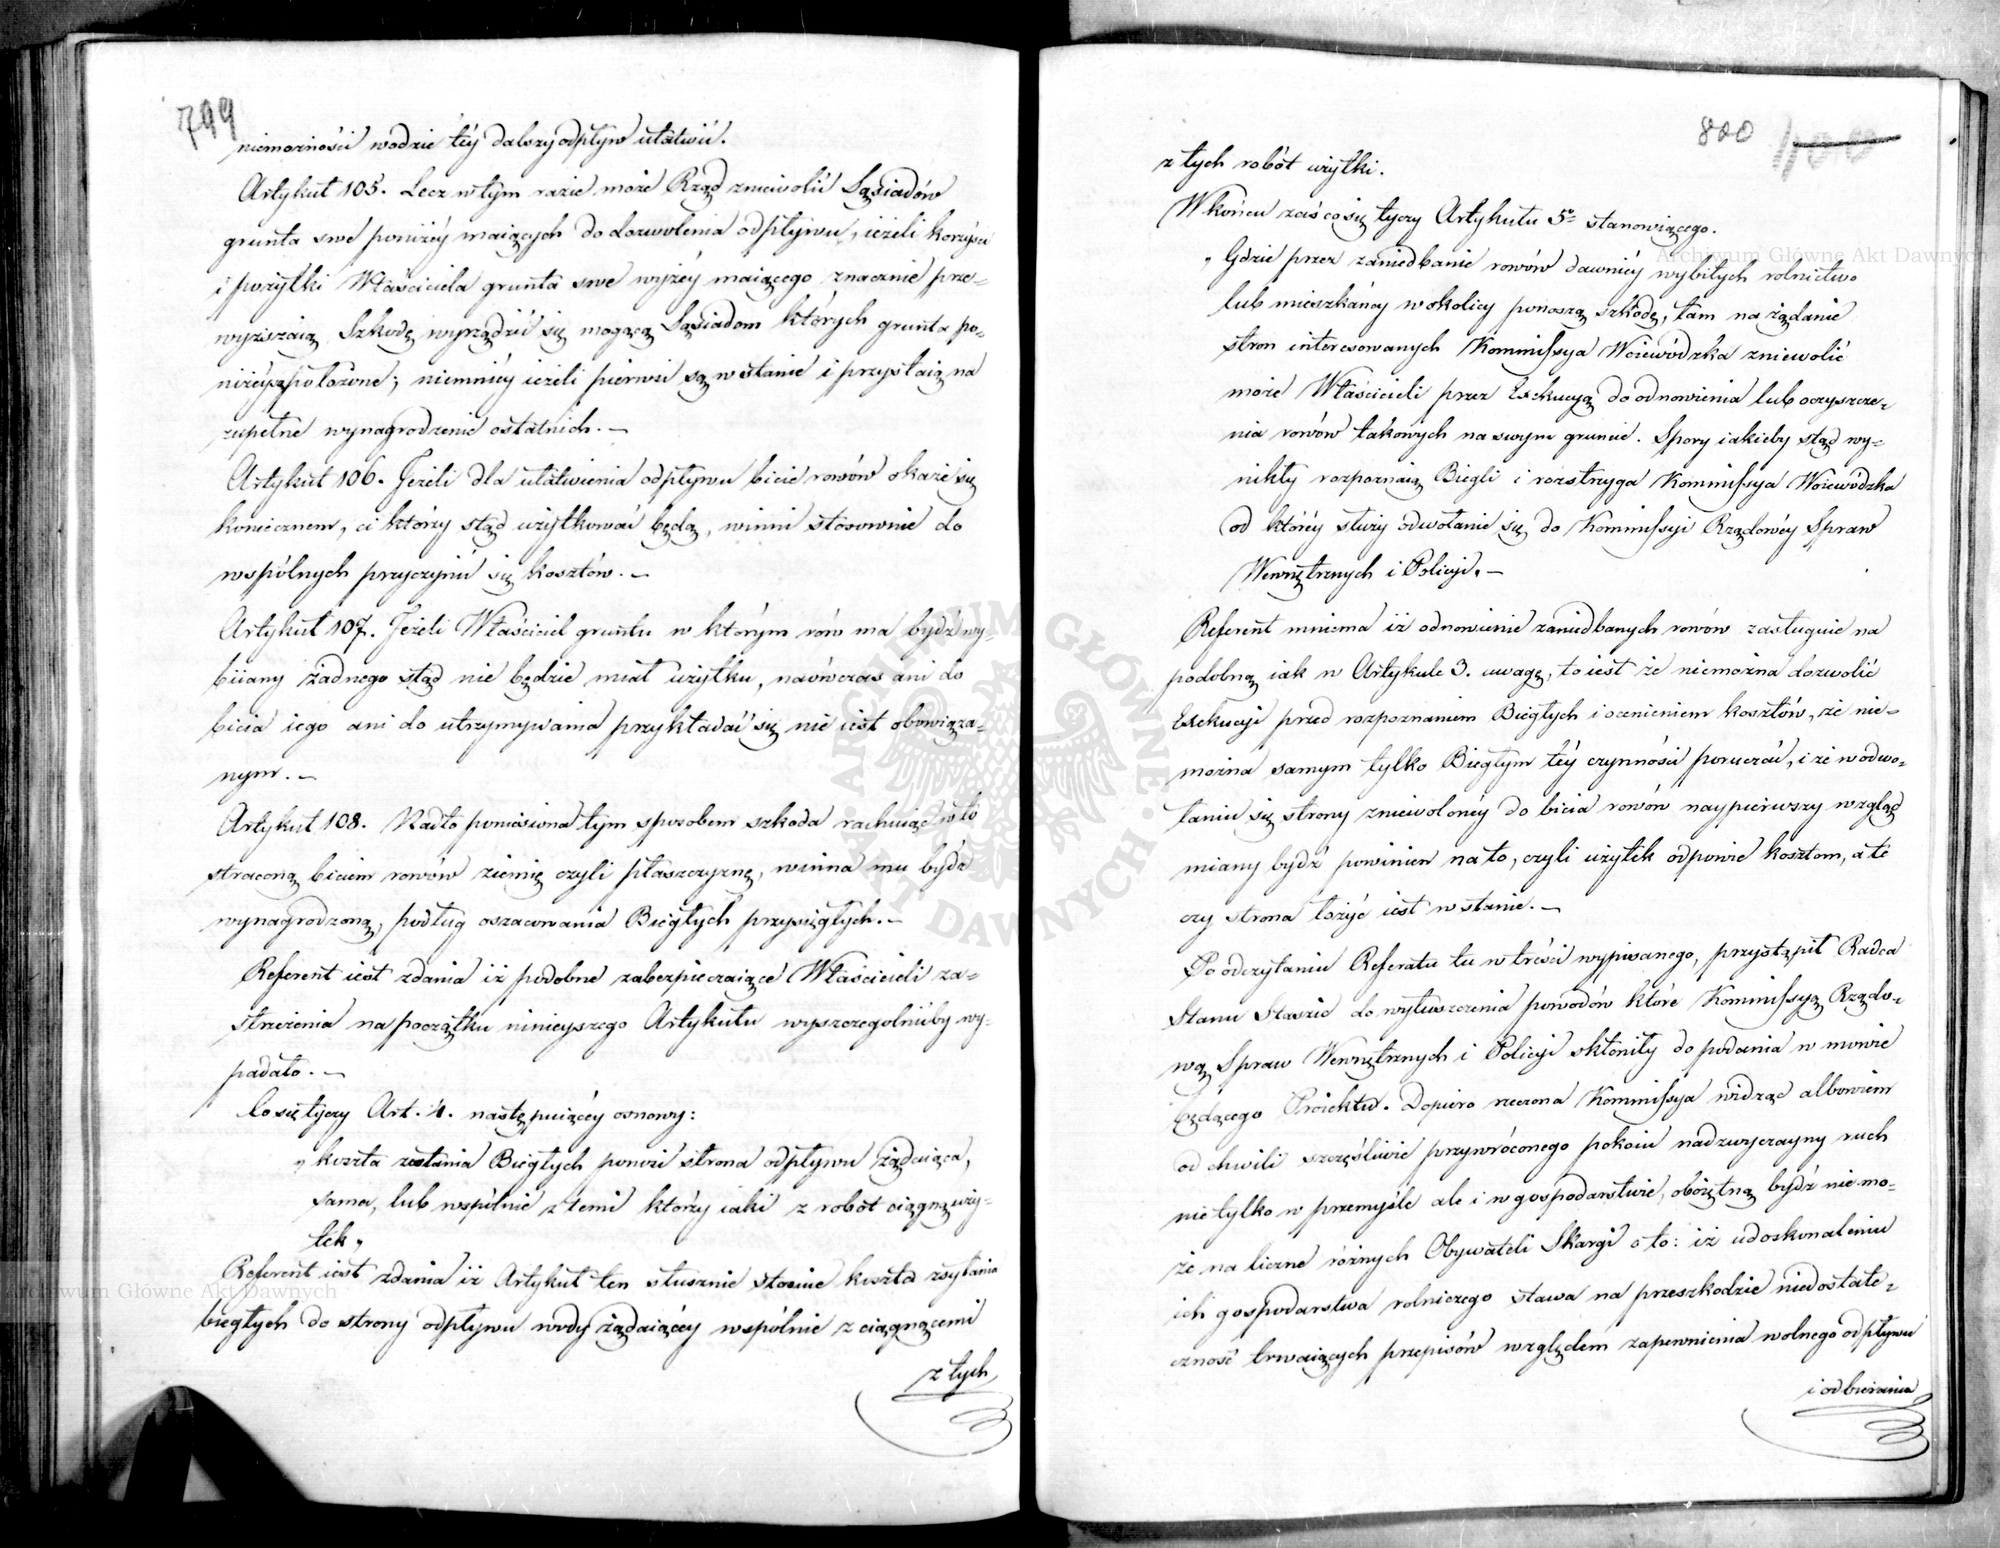 799
niemożności wodzie téy dalszy odpływ ułatwić.
Artykuł 105. Lecz w tym razie może Rząd zniewolić Sąsiadów
grunta swe poniżéy maiących do dozwolenia odpływu, ieżeli korzyści
i pożytki Właściciela grunta swe wyżéy maiącego znacznie prze=
wyższaią Szkodę wyrządzić się mogącą Sąsiadom których grunta po=
niżéy są położone; niemniéy ieżeli pierwsi są w stanie i przystaią na
zupełne wynagrodzenie ostatnich. —
Artykuł 106. Jeżeli dla ułatwienia odpływu bicie rowów okaże się
koniecznem, ci którzy stąd użytkować będą, winni stosownie do
wspólnych przyczynić się kosztów. —
Artykuł 107. Jeżeli Właściciel gruntu w którym rów ma bydź wy=
biiany żadnego stąd nie będzie miał użytku, naówczas ani do
bicia iego ani do utrzymywania przykładać się nie iest obowiąza=
nym. —
Artykuł 108. Nadto poniesiona tym sposobem szkoda rachuiąc w to
straconą biciem rowów ziemię czyli płaszczyznę, winna mu bydź
wynagrodzoną, podług oszacowania Biegłych przysięgłych. —
Referent iest zdania iż podobne zabezpieczaiące Właścicieli za=
strzeżenia na początku ninieyszego Artykułu wyszczególnićby wy=
padało. —
Co się tyczy Art. 4. następuiącéy osnowy:
„ koszta zesłania Biegłych ponosi strona odpływu żądaiąca,
sama, lub wspólnie z temi którzy iaki z robót ciągną uży=
tek „
Referent iest zdania iż Artykuł ten słusznie stosuie koszta zsyłania
biegłych do strony odpływu wody żądaiącéy wspólnie z ciągnącemi
z tych
800 400
z tych robót użytki.
W końcu zaś co się tyczy Artykułu 5º stanowiącego.
„ Gdzie przez zaniedbanie rowów dawniéy wybitych rolnictwo
lub mieszkańcy w okolicy ponoszą szkodę, tam na żądanie
stron interesowanych Kommissya Woiewódzka zniewolić
może Właścicieli przez Exekucyą do odnowienia lub oczyszcze=
nia rowów takowych na swym gruncie. Spory iakieby stąd wy=
nikły rozpoznaią Biegli i rozstrzyga Kommissya Woiewódzka
od któréy służy odwołanie się do Kommissyi Rządowéy Spraw
Wewnętrznych i Policyi. —
Referent mniema iż odnowienie zaniedbanych rowów zasługuie na
podobną iak w Artykule 3. uwagę, to iest że niemożna dozwolić
Exekucyi przed rozpoznaniem Biegłych i ocenieniem kosztów, że nie=
można samym tylko Biegłym téy czynności poruczać, i że w odwo=
łaniu się strony zniewolonéy do bicia rowów naypierwszy wzgląd
miany bydź powinien na to, czyli użytek odpowie kosztom, a te
czy strona łożyć iest w stanie. —
Po odczytaniu Referatu tu w treści wypisanego, przystąpił Radca
Stanu Staszic do wyłuszczenia powodów które Kommissyą Rządo=
wą Spraw Wewnętrznych i Policyi skłoniły do podania w mowie
będącego Proiektu. Dopiero rzeczona Kommissya widząc albowiem
od chwili szczęśliwie przywróconego pokoiu nadzwyczayny ruch
nie tylko w przemyśle ale i w gospodarstwie, oboiętną bydź nie mo=
że na liczne różnych Obywateli Skargi o to: iż udoskonaleniu
ich gospodarstwa rolniczego stawa na przeszkodzie niedostate=
czność trwaiących przepisów względem zapewnienia wolnego odpływu
i odbierania
Archiwum Główne Akt Dawnych
Archiwum Główne Akt Dawnych
ARCHIWUM GŁÓWNE AKT DAWNYCH